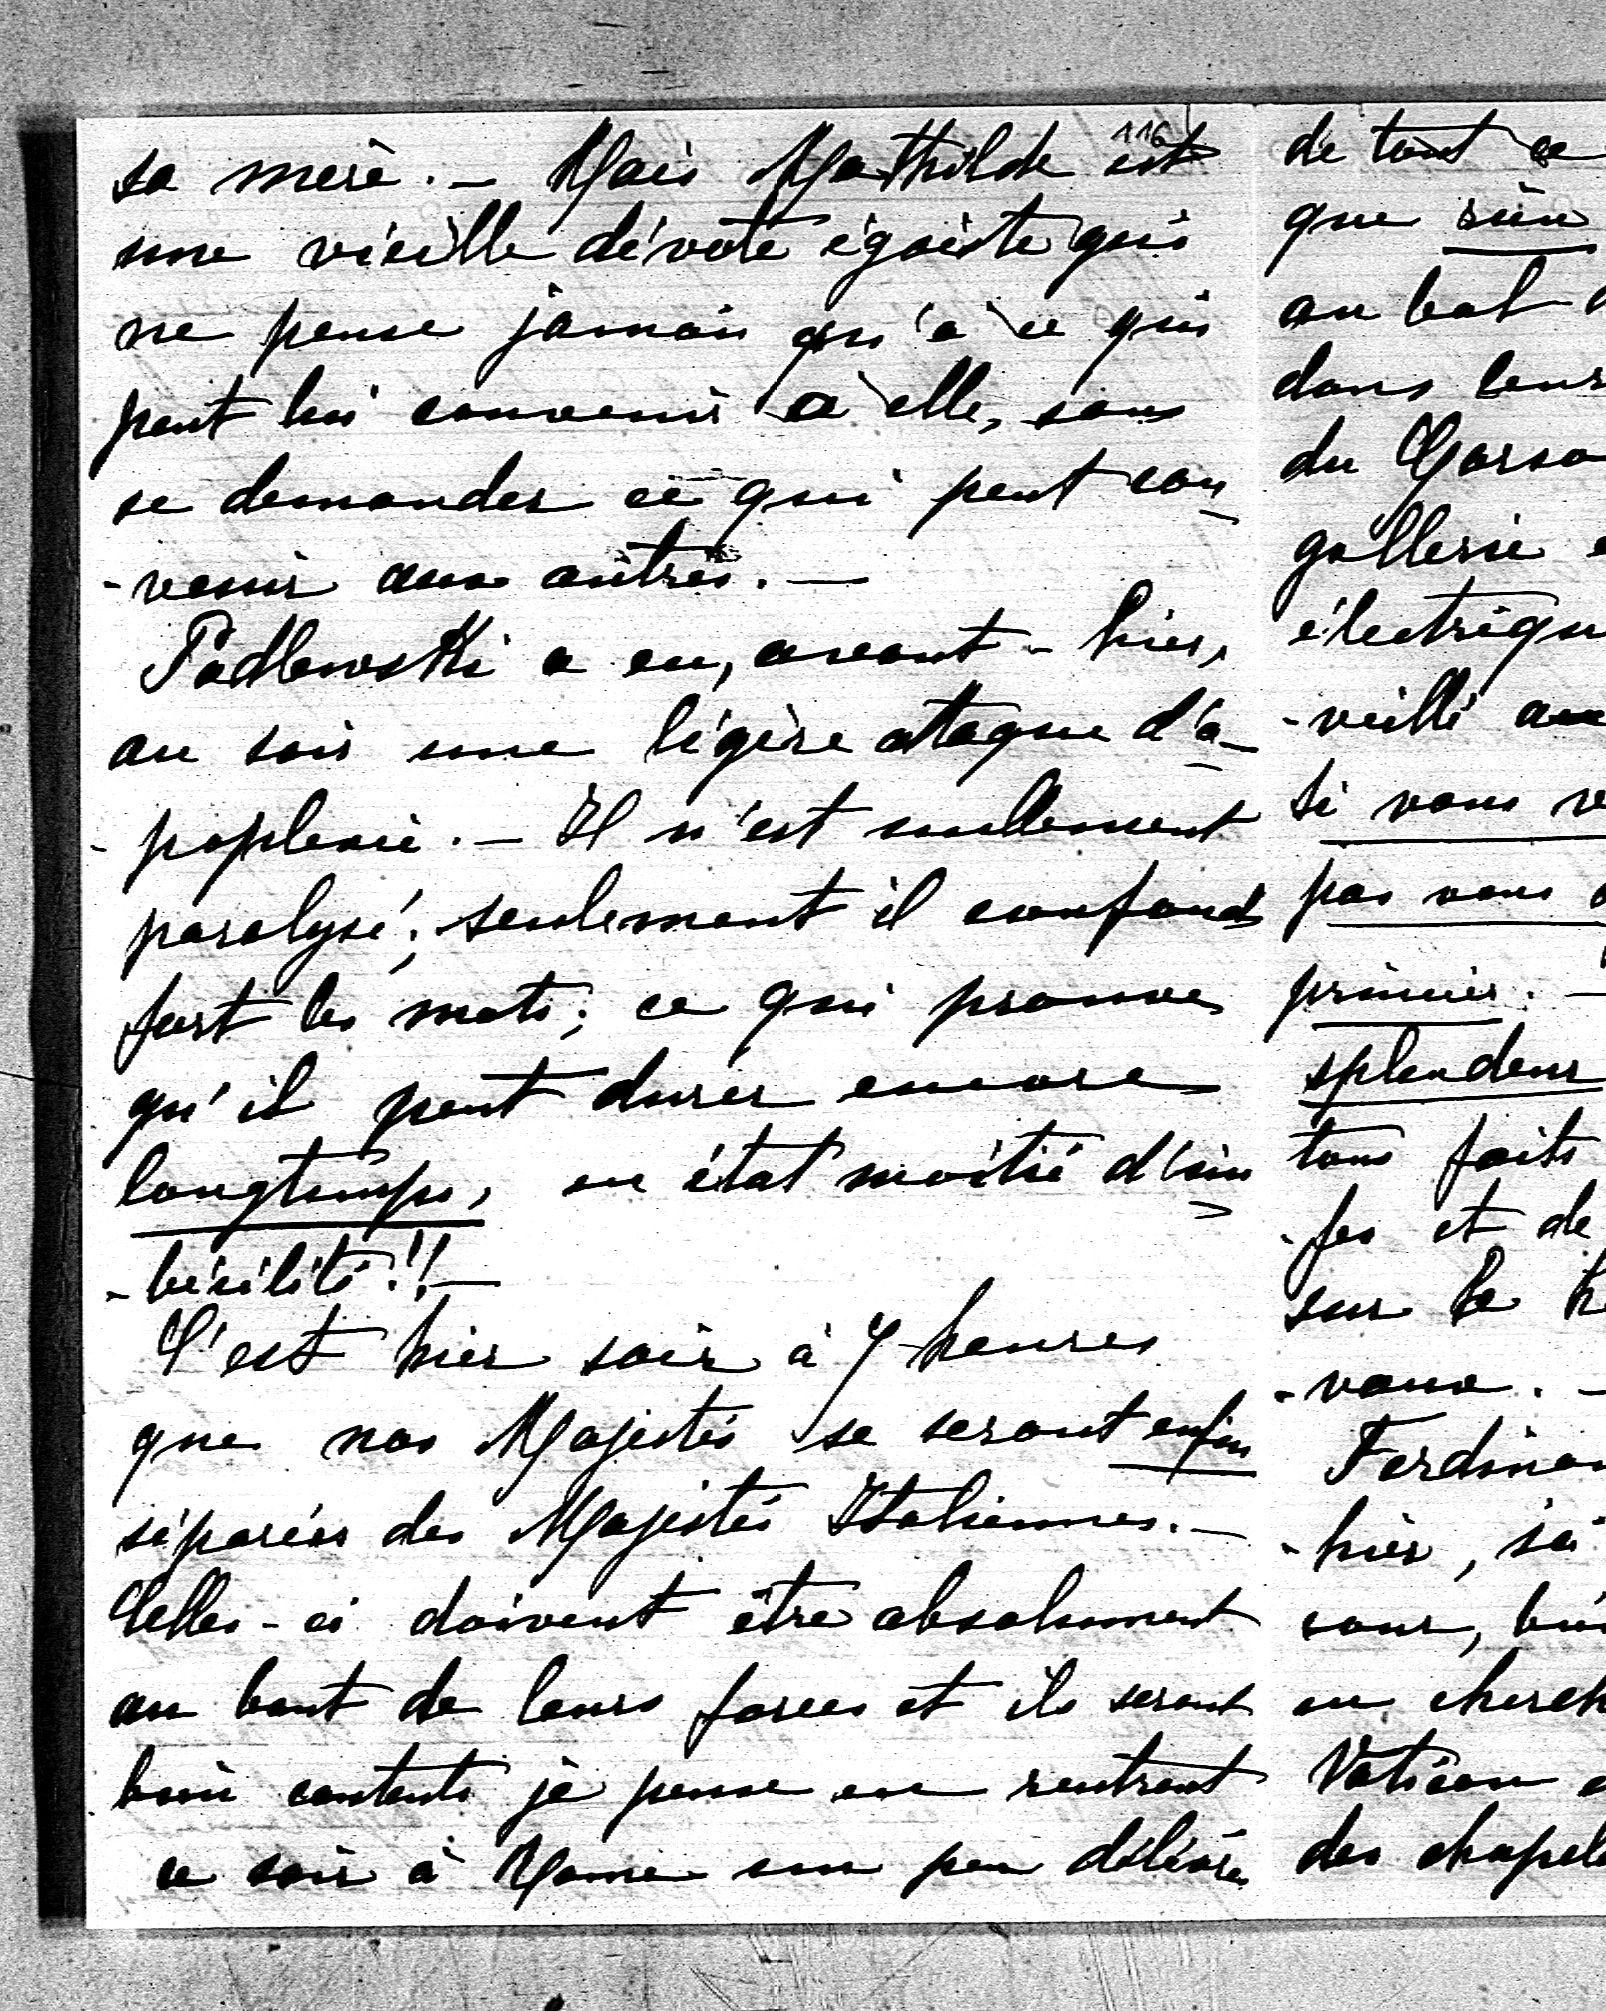 116
sa mère. — Mais Mathilde est
une vieille dévote égoïste qui
ne pense jamais qu'à ce qui
peut lui convenir à elle, sans
se demander ce qui peut con-
-venir aux autres. —
Podlewski a eu, avant-hier,
au soir une légère attaque d'a-
-poplexie. — Il n'est nullement
paralysé; seulement il confond
fort les mots; ce qui prouve
qu'il peut durer encore
longtemps, en état moitié d'im-
-bécilité!! —
C'est hier soir à 7 heures
que nos Majestés se seront enfin
séparées des Majestés Italiennes. —
Celles-ci doivent être absolument
au bout de leurs forces et ils seront
bien contents je pense en rentrant
ce soir à Rome un peu délivrés
de tout ce
que rien
au bal
dans leur
du Corso
gallerie
électriqu
-veillé au
si vous v
pas vous
premier. —
splendeur
tous faits
-fes et de
sur le
-vaux. —
Ferdinan
-hier,
cour,
en cherch
Vatican
des chapel